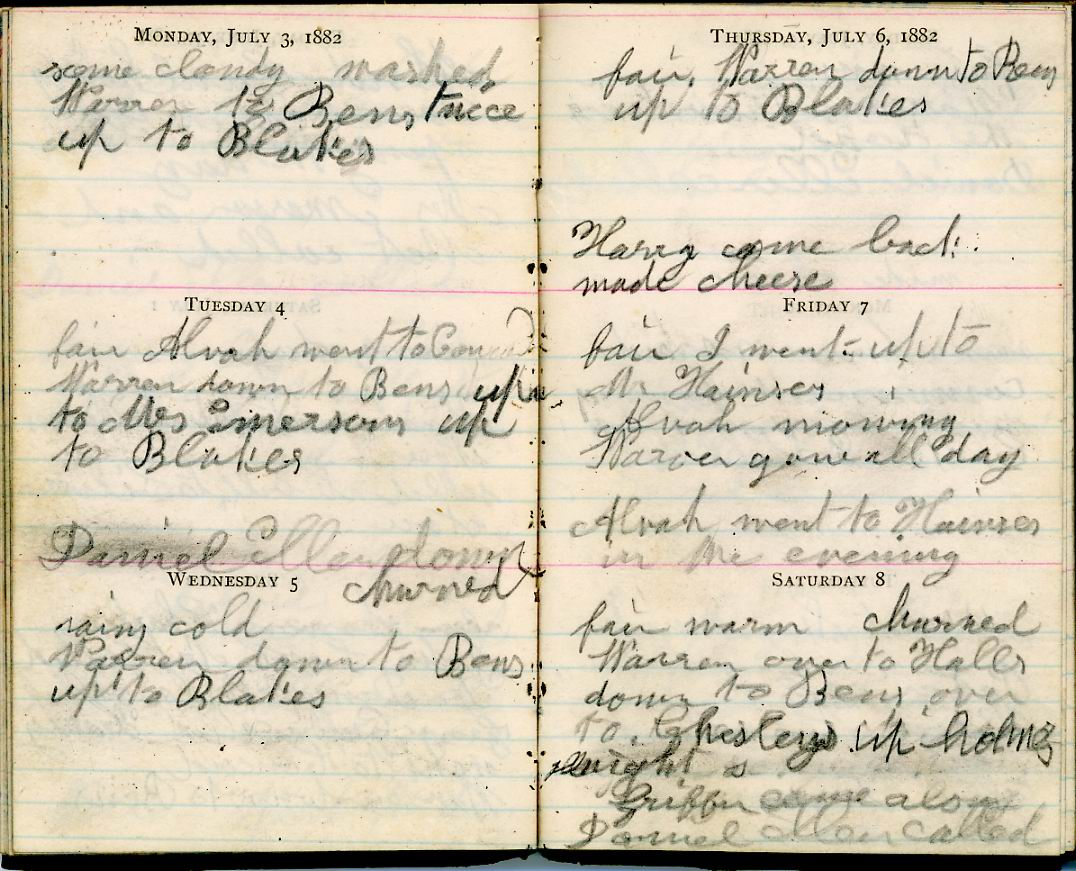 MONDAY, JULY 3, 1882
some cloudy washed
Warren to Bens twice
up to Blakes
TUESDAY 4
fair Alvah went to
Warren down to Bens up
to Mrs Emersons up
to Blakes
Daniel Ellen down
churned
WEDNESDAY 5
rainy cold
Warren down to Bens
up to Blakes
THURSDAY, JULY 6, 1882
fair. Warren down to Bens
up to Blakes
Harry came back
made cheese
FRIDAY 7
fair I went up to
Mr Hainses
Alvah mowing
Warren gone all day
Alvah went to Hainses
in the evening
SATURDAY 8
fair warm churned
Warren over to Halls
down to Bens over
to Chesleys up
night
came along
Daniel Ellen called